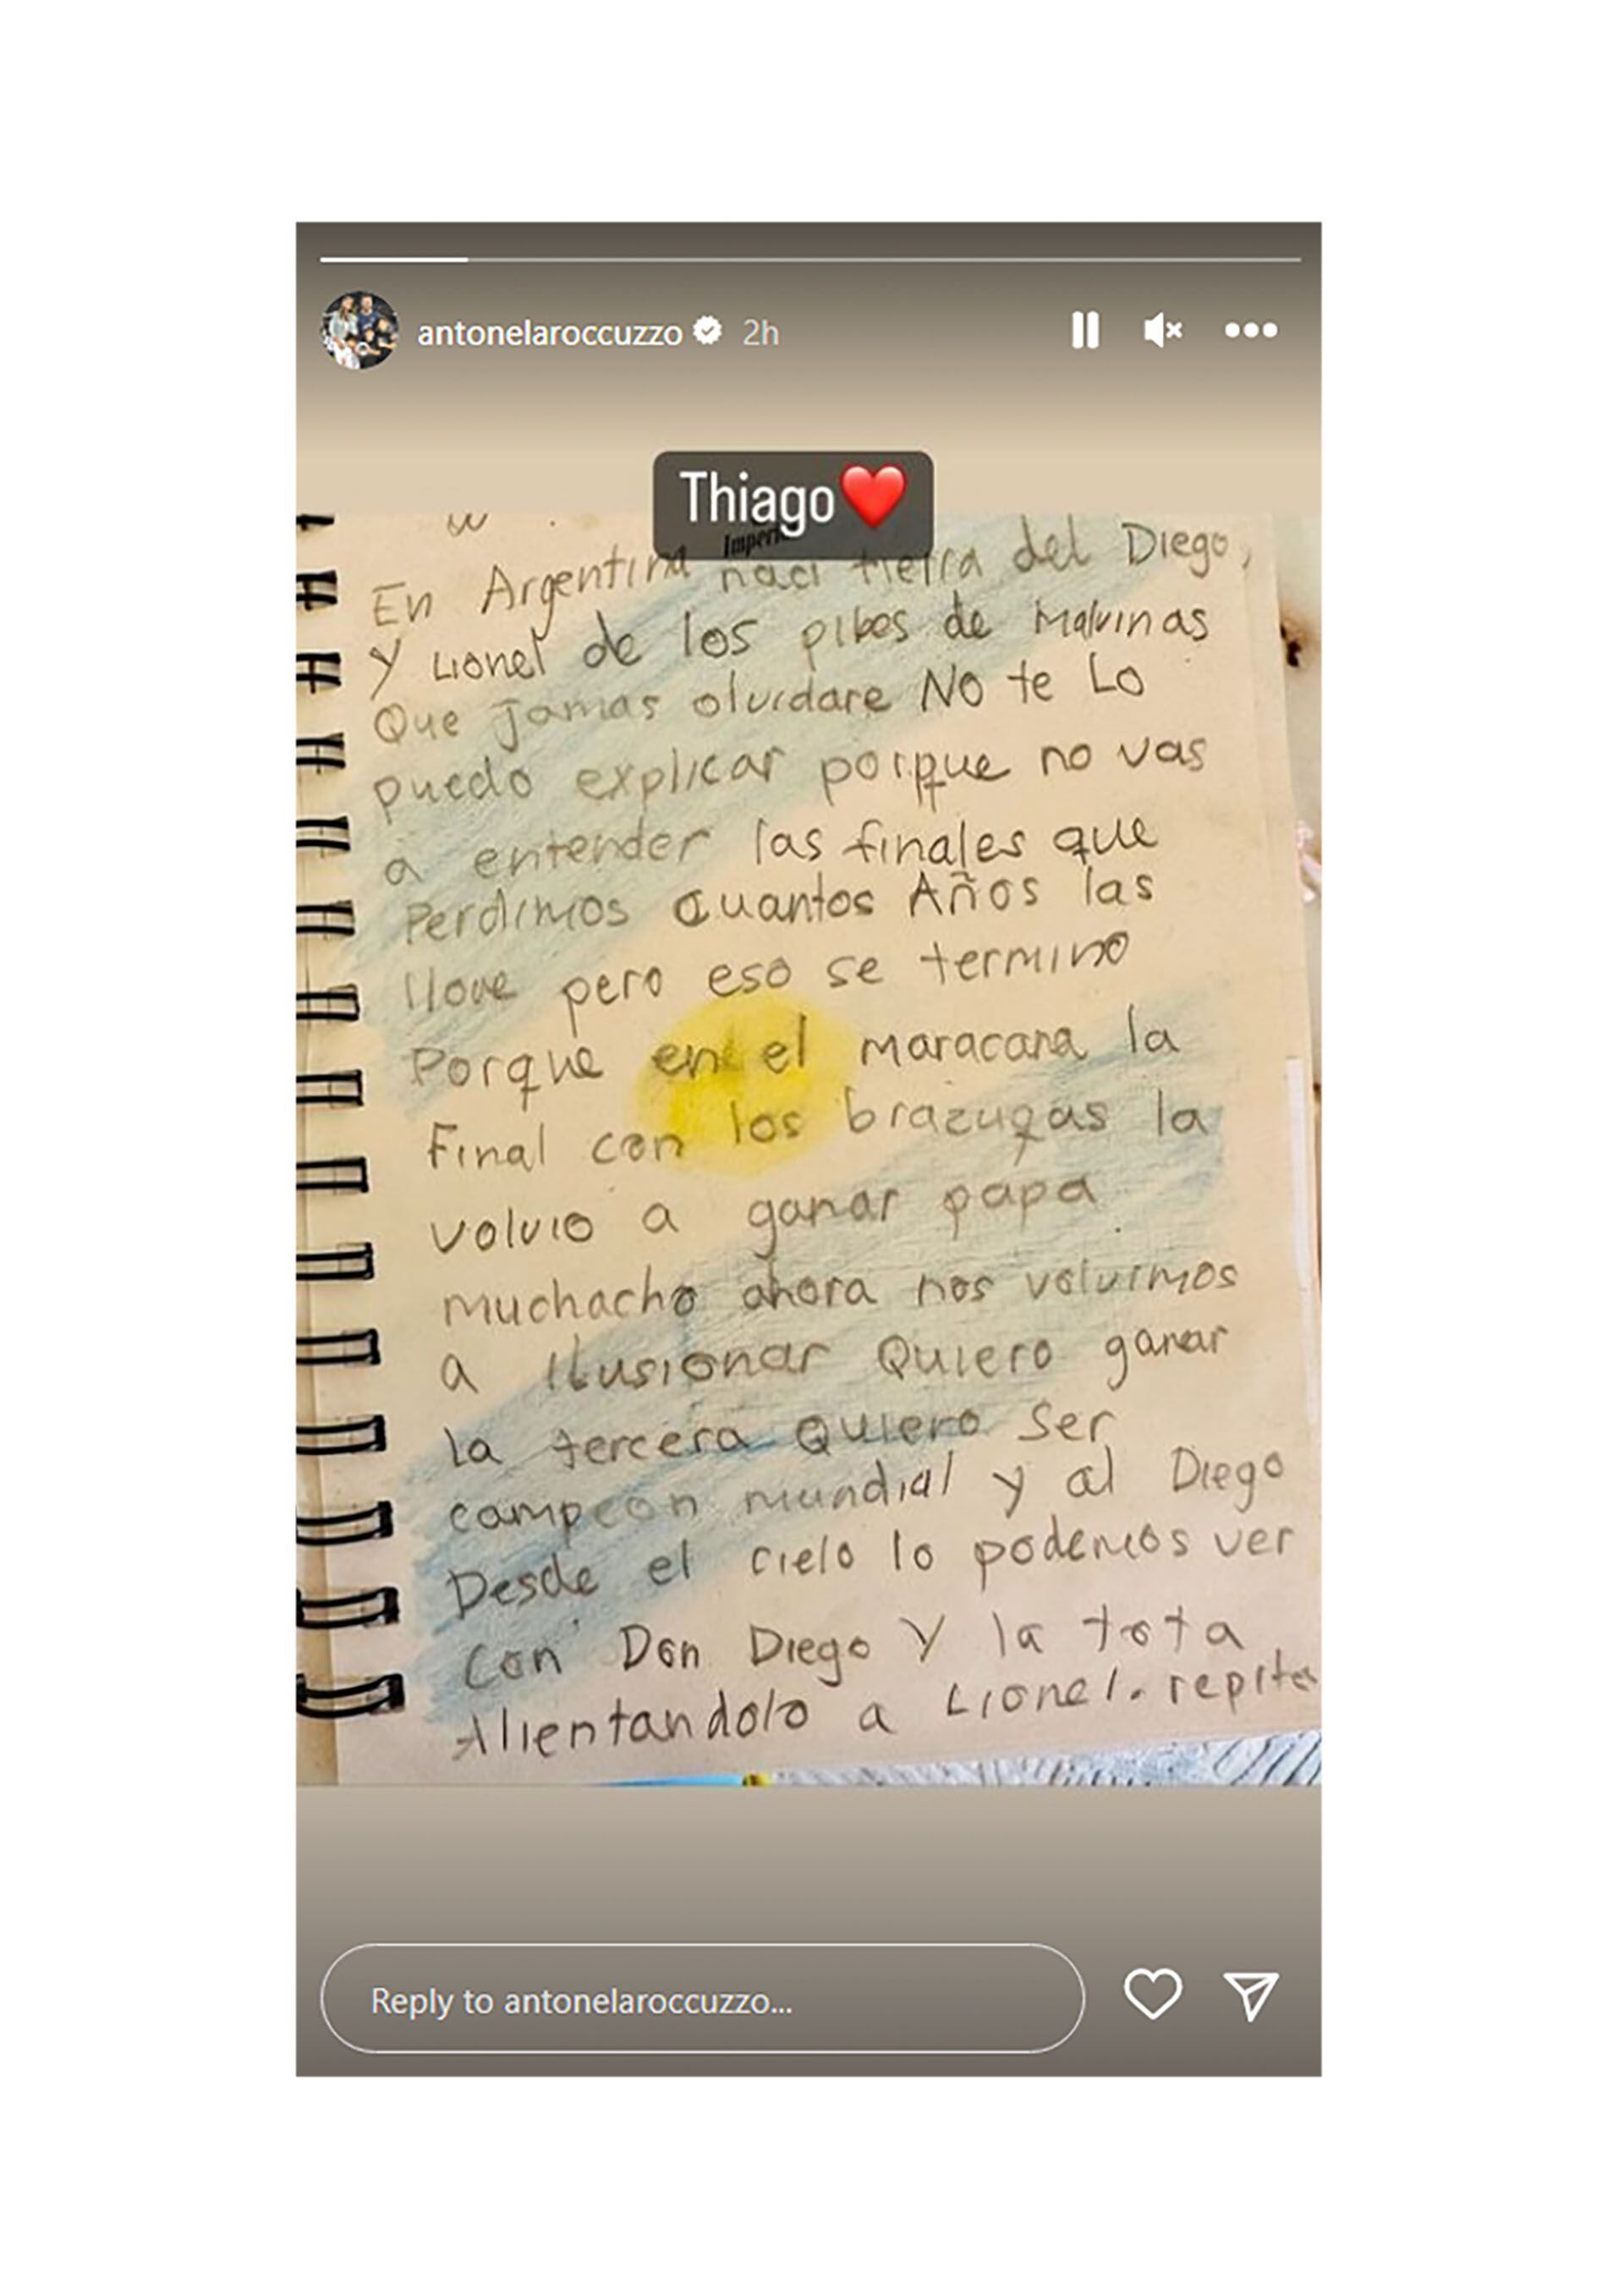 antonelaroccuzzo 2h
Thiago
Imperi
En Argentina naci tierra del Diego,
y Lionel de los pibes de Malvinas
Que jamas olvidare NO te Lo
puedo explicar porque no vas
a entender las finales que
Perdimos cuantos Años las
llore pero eso se termino
Porque en el maracana la
Final con los brazugas la
volvio a ganar papa
muchacho ahora nos volvimos
a ilusionar Quiero ganar
la tercera Quiero ser
campeon mundial y al Diego
Desde el cielo lo podemos ver
Con Don Diego Y la tota
Alientandolo a Lionel. repite
Reply to antonelaroccuzzo...